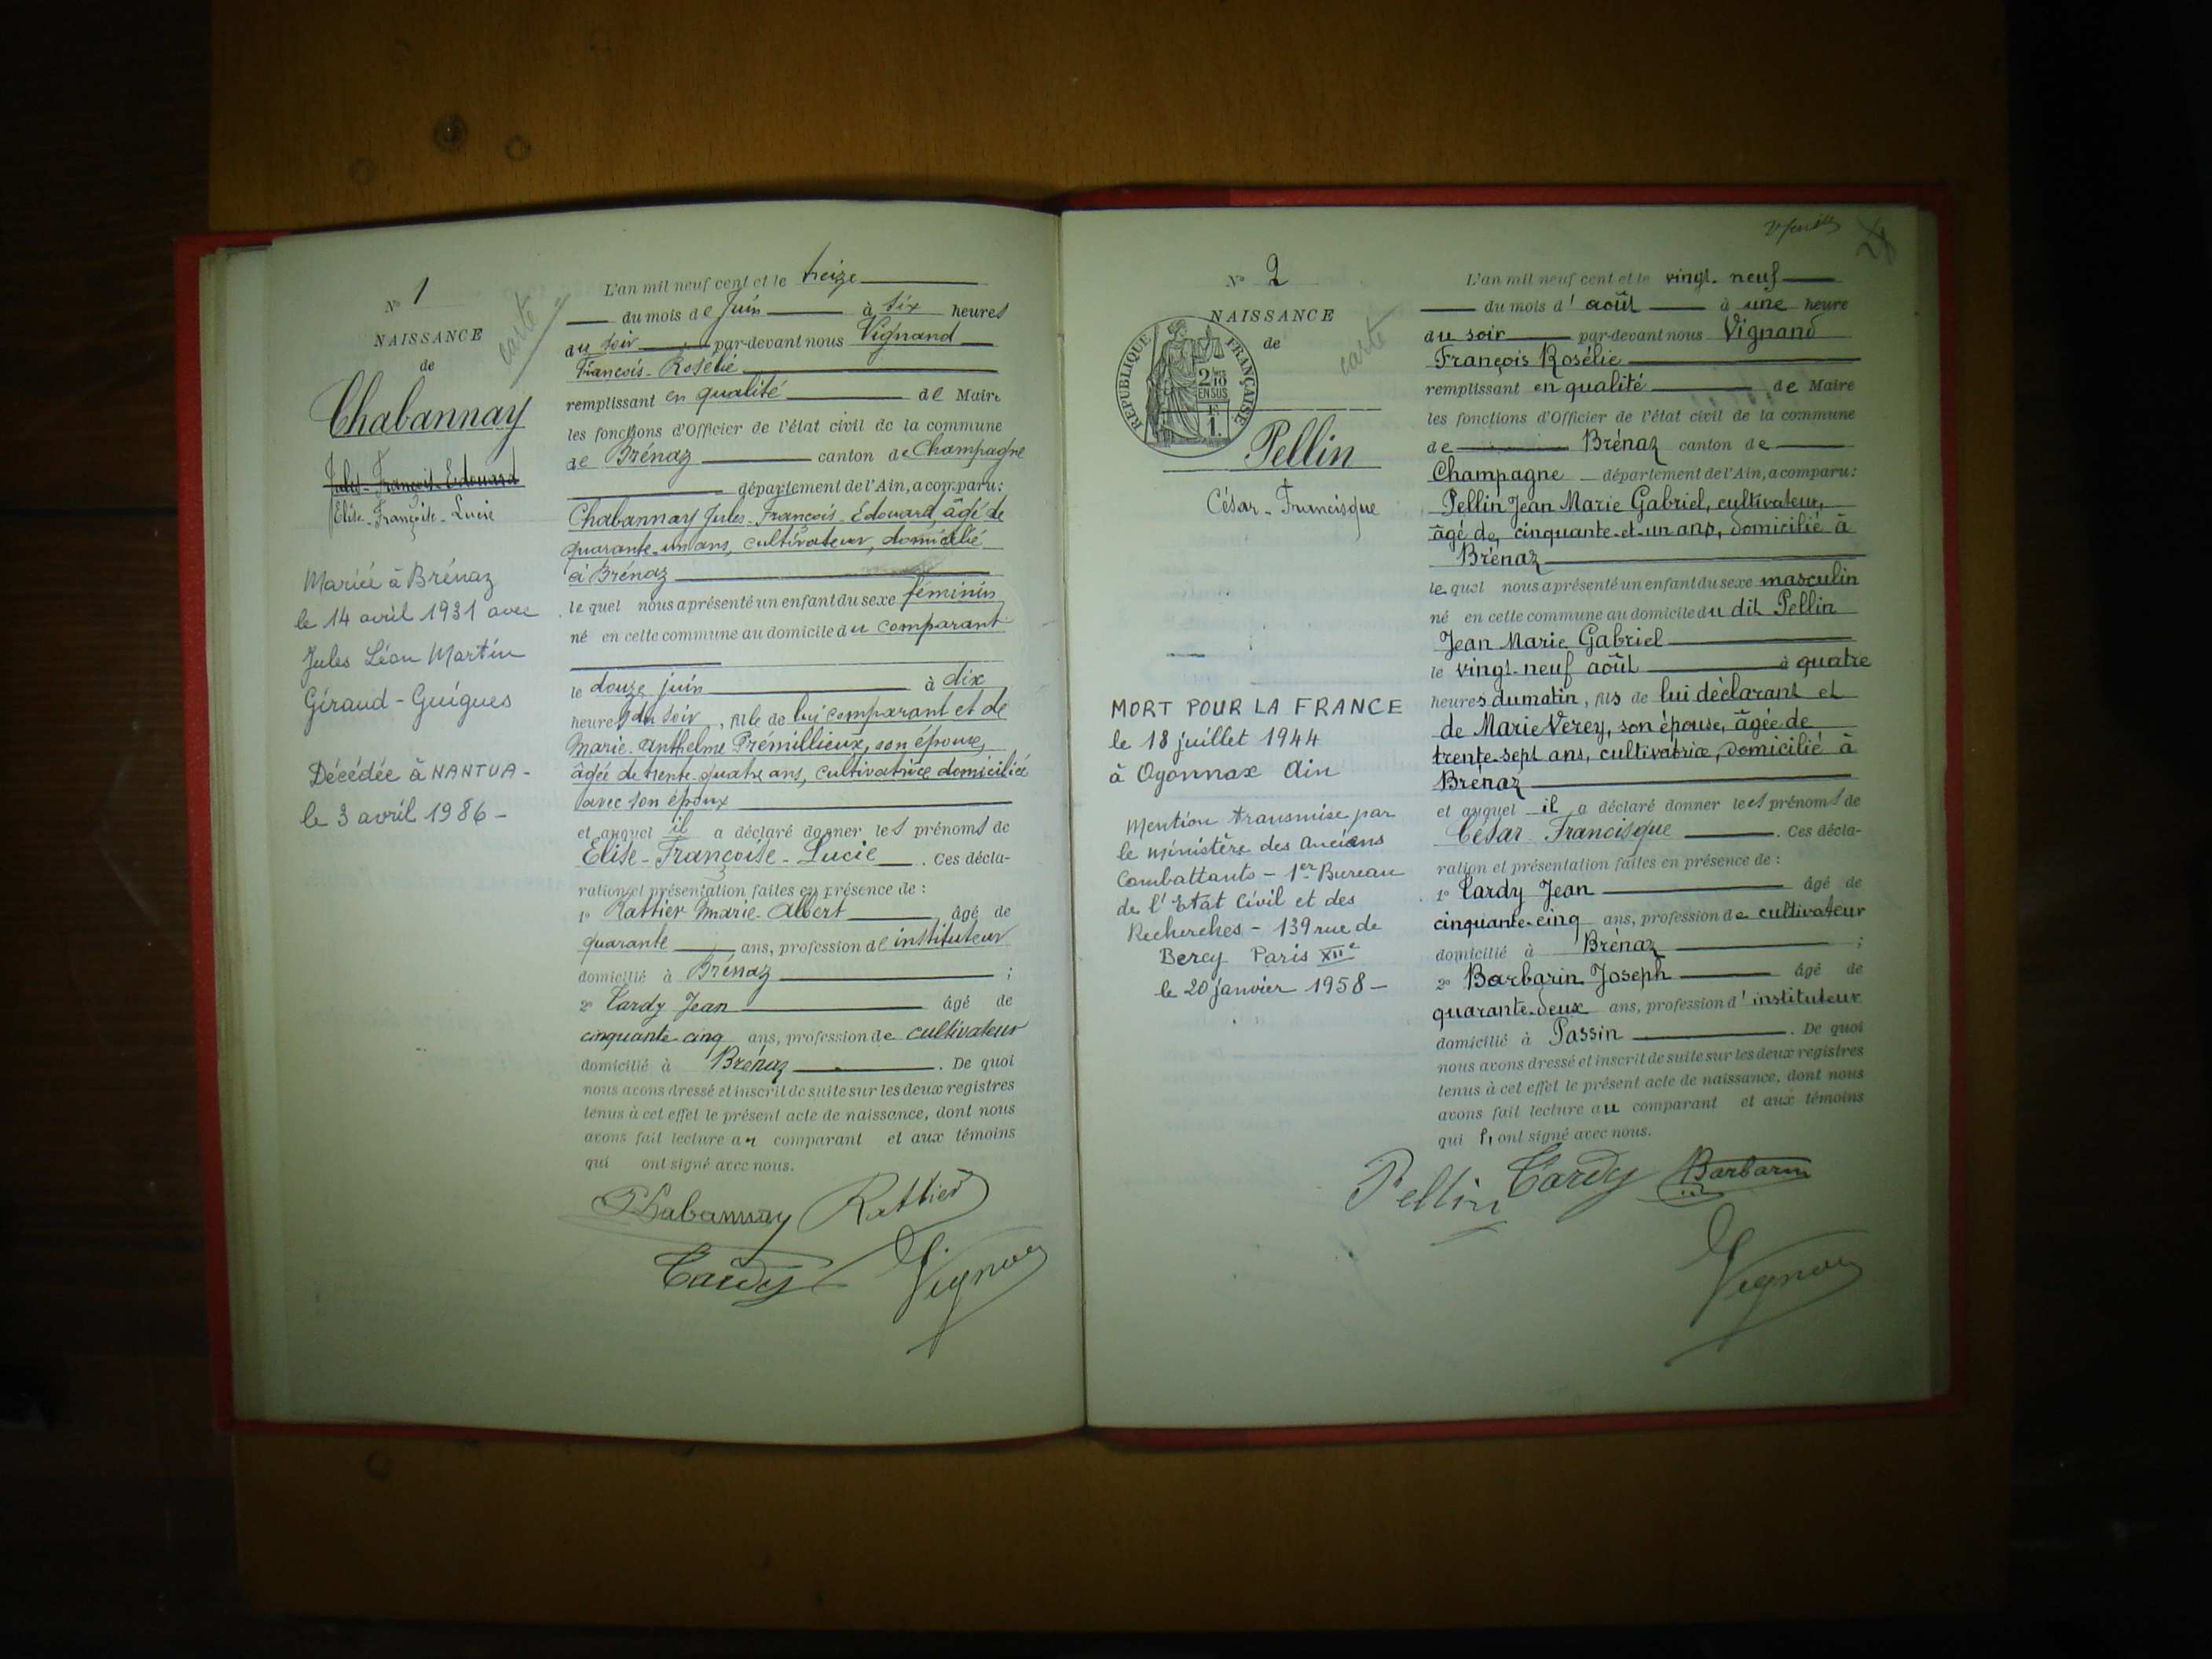 N° 1
NAISSANCE
de
Chabannay
Jules-François-Edouard
Elise-Françoise-Lucie
carte
Mariée à Brénaz
le 14 avril 1931 avec
Jules Léon Martin
Giraud-Guigues
Décédée à NANTUA -
le 3 avril 1986 -
L'an mil neuf cent et le treize
du mois de Juin à six heures
du soir par-devant nous Vignand
François-Rosélie
remplissant en qualité de Maire
les fonctions d'Officier de l'état civil de la commune
de Brénaz canton de Champagne
département de l'Ain, a comparu:
Chabannay Jules-François-Edouard, âgé de
quarante-un ans, cultivateur, domicilié
à Brénaz
le quel nous a présenté un enfant du sexe féminin
né en cette commune au domicile du comparant
le douze juin à dix
heures du soir, fille de lui comparant et de
Marie-Anthelme Prémillieux, son épouse,
âgée de trente-quatre ans, cultivatrice domiciliée
avec son époux
et auquel il a déclaré donner les prénoms de
Elise-Françoise-Lucie. Ces décla-
ration et présentation faites en présence de :
1° Rattier Marie-Albert âgé de
quarante ans, profession de instituteur
domicilié à Brénaz ;
2° Tardy Jean âgé de
cinquante cinq ans, profession de cultivateur
domicilié à Brénaz. De quoi
nous avons dressé et inscrit de suite sur les deux registres
tenus à cet effet le présent acte de naissance, dont nous
avons fait lecture au comparant et aux témoins
qui ont signé avec nous.
Chabannay Rattier
Tardy Vignand
N° 2
NAISSANCE
de
RÉPUBLIQUE FRANÇAISE
2/10 EN SUS
1
carte
Pellin
César-Francisque
MORT POUR LA FRANCE
le 18 juillet 1944
à Oyonnax Ain
Mention transmise par
le ministère des Anciens
Combattants - 1er Bureau
de l'Etat Civil et des
Recherches - 139 rue de
Bercy Paris XIIe
le 20 janvier 1958 -
L'an mil neuf cent et le vingt-neuf
du mois d'août à une heure
du soir par-devant nous Vignand
François Rosélie
remplissant en qualité de Maire
les fonctions d'Officier de l'état civil de la commune
de Brénaz canton de
Champagne département de l'Ain, a comparu:
Pellin Jean Marie Gabriel, cultivateur,
âgé de, cinquante-et-un ans, domicilié à
Brénaz
le quel nous a présenté un enfant du sexe masculin
né en cette commune au domicile du dit Pellin
Jean Marie Gabriel
le vingt-neuf août à quatre
heures du matin, fils de lui déclarant et
de Marie Verey, son épouse, âgée de
trente-sept ans, cultivatrice, domicilié à
Brénaz
et auquel il a déclaré donner les prénoms de
César Francisque. Ces décla-
ration et présentation faites en présence de :
1° Tardy Jean âgé de
cinquante-cinq ans, profession de cultivateur
domicilié à Brénaz ;
2° Barbarin Joseph âgé de
quarante-deux ans, profession d'instituteur
domicilié à Passin. De quoi
nous avons dressé et inscrit de suite sur les deux registres
tenus à cet effet le présent acte de naissance, dont nous
avons fait lecture au comparant et aux témoins
qui ont signé avec nous.
Pellin Tardy Barbarin
Vignand